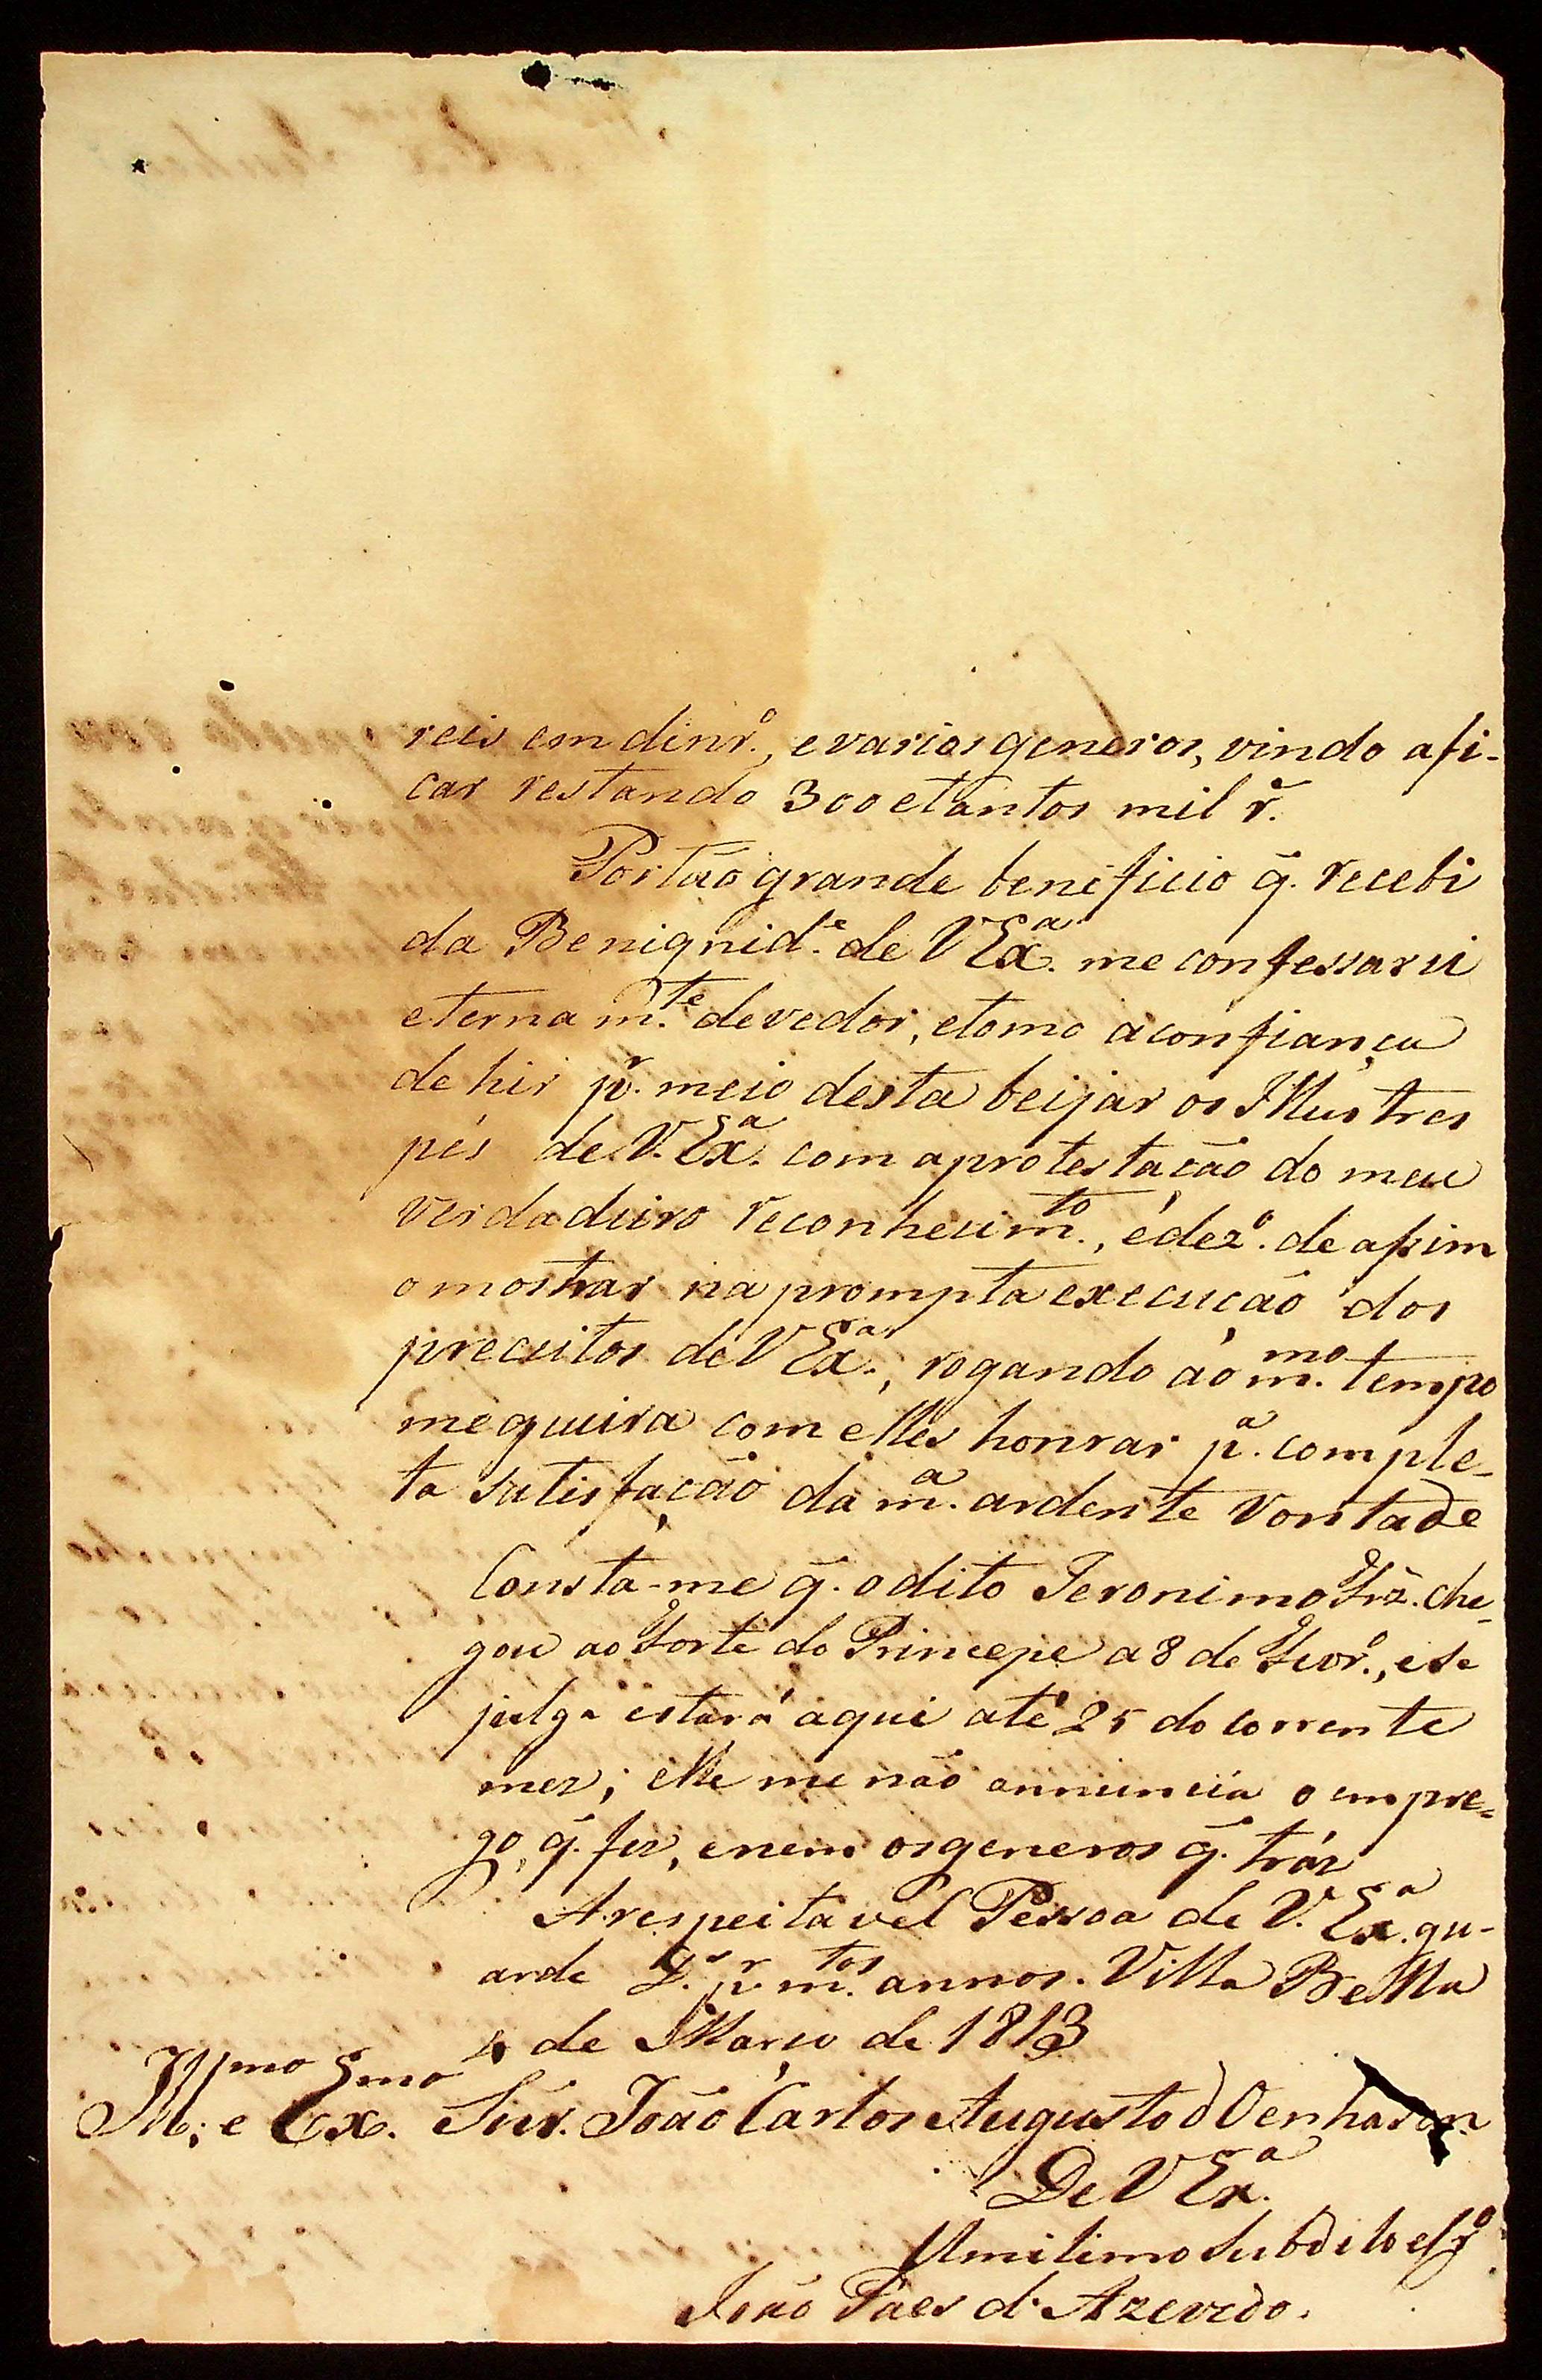 reis em dinrº., e varios generos, vindo afi-
car restando 300 e tantos mil rˢ.
Por tão grande beneficio q̃. recebi
da Benignidᵉ. de V Exᵃ. me confessarei
eternamᵗᵉ. devedor, e tomo a confiança
de hir pʳ. meio desta beijar os Illustres
pés de V. Exᵃ. com a protestação do meu
verdadeiro reconhecimᵗᵒ., é dezº. de assim
o mostrar na prompta execução dos
preceitos de V Exᵃ., rogando ao mᵐᵒ. tempo
me queira com elles honrar pᵃ. comple-
ta satisfação da mᵃ. ardente vontade
Consta-me q̃. o dito Jeronimo Frz̃. che-
gou ao Forte do Principe a 8 de Fevrº., e se
julga estará aqui até 25 do corrente
mez; elle me não annuncia o empre=
go, q̃. fez, e nem os generos q̃. tráz
A respeitavel Pessoa de V. Exᵃ. gu-
arde Dˢ. pʳ. mᵗᵒˢ. annos. Villa Bella
4 de Março de 1813
Illᵐᵒ. e Exᵐᵒ. Snr̃. João Carlos Augusto d'Oenhausen.
De V Exᵃ.
Umilimo Subdito e
João Paes d'Azevedo.